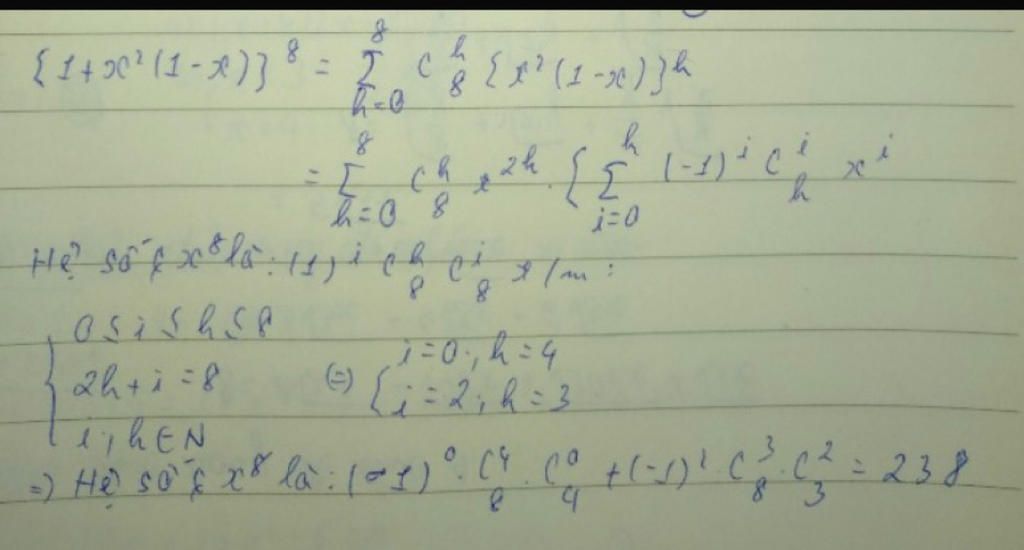 {1+x²(1-x)}⁸ = ∑_{k=0}^{8} C_8^k {x²(1-x)}^k
= ∑_{k=0}^{8} C_8^k x^{2k} . { ∑_{i=0}^{k} (-1)^i C_k^i x^i
Hệ số ç x⁸ là : (1)^i C_8^k C_8^i t/m :
{ 0 ≤ i ≤ k ≤ 8
2k + i = 8 (=) { i = 0 ; k = 4
i = 2 ; k = 3
i ; k ∈ N
=) Hệ số ç x⁸ là : (-1)⁰ . C_8^4 . C_4^0 + (-1)² . C_8^3 . C_3^2 = 238